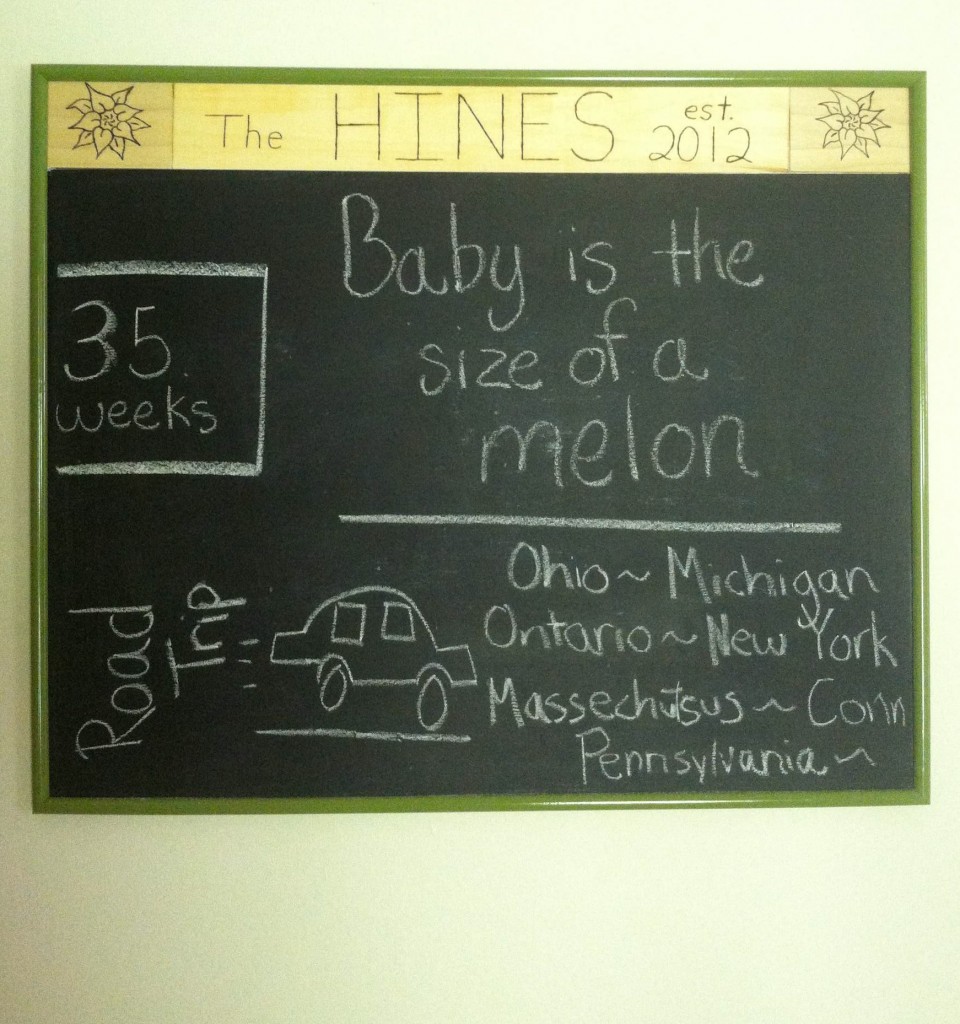 The HINES est. 2012
35
weeks
Baby is the
size of a
melon
Road
Trip
Ohio~ Michigan
Ontario~ New York
Massechutsus ~ Conn
Pennsylvania ~